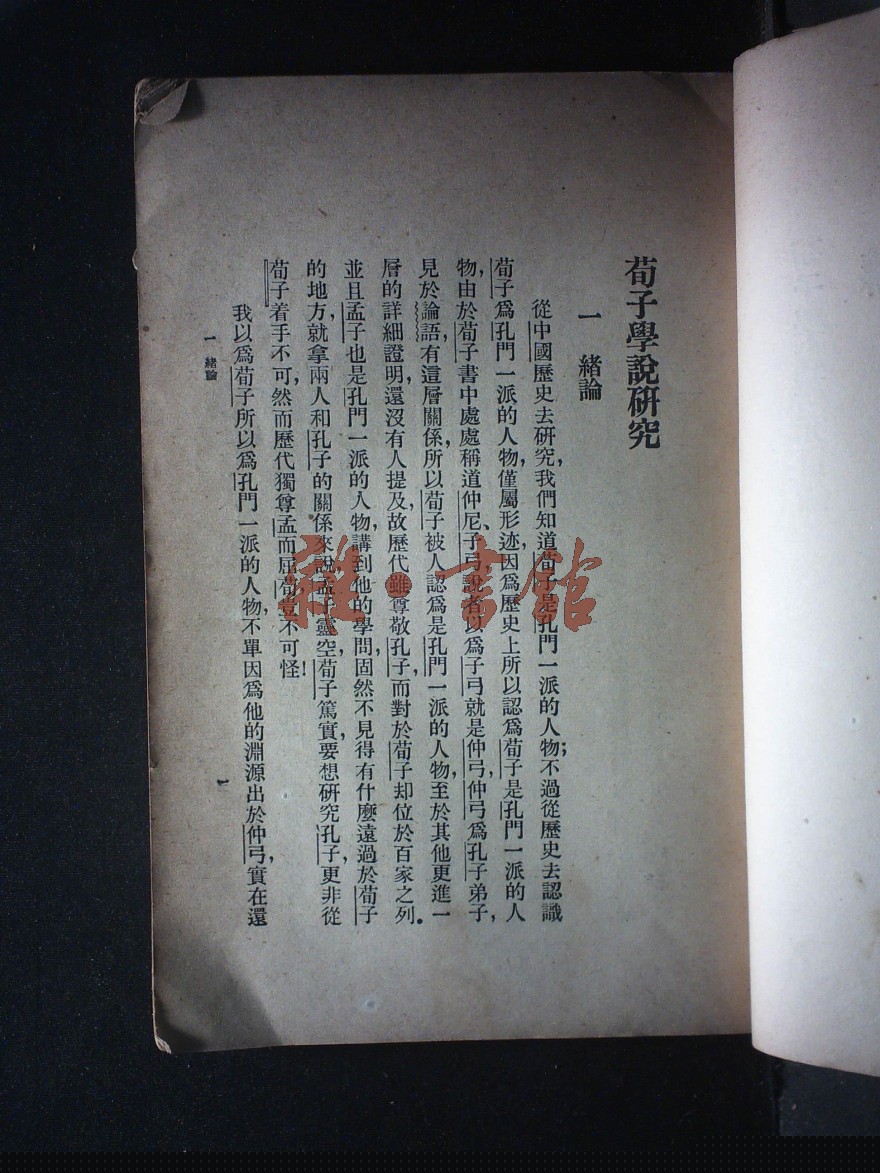 荀子學說研究
一 緒論
從中國歷史去研究,我們知道荀子是孔門一派的人物;不過從歷史去認識
荀子爲孔門一派的人物,僅屬形迹,因爲歷史上所以認爲荀子是孔門一派的人
物,由於荀子書中處處稱道仲尼、子弓,說者以爲子弓就是仲弓,仲弓爲孔子弟子,
見於論語,有這層關係,所以荀子被人認爲是孔門一派的人物,至於其他更進一
層的詳細證明,還沒有人提及,故歷代雖尊敬孔子,而對於荀子却位於百家之列。
並且孟子也是孔門一派的人物,講到他的學問,固然不見得有什麼遠過於荀子
的地方,就拿兩人和孔子的關係來說,孟子靈空,荀子篤實,要想研究孔子,更非從
荀子着手不可,然而歷代獨尊孟而屈荀,豈不可怪!
我以爲荀子所以爲孔門一派的人物,不單因爲他的淵源出於仲弓,實在還
一 緒論
一
雜·書館